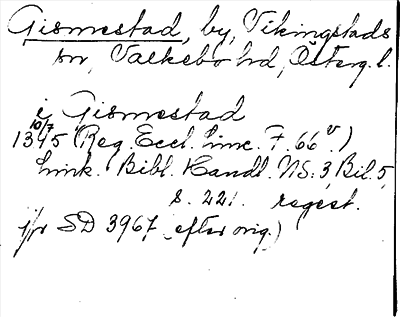 Gismestad, by, Vikingstads
sn, Valkebo hd, Österg. l.
i Gismestad
10/7
1345 (Reg. Eccl. Linc. F. 66 v.)
Link. Bibl. Handl. NS: 3, Bil. 5,
s. 221. regest.
jfr SD 3967 efter orig.)